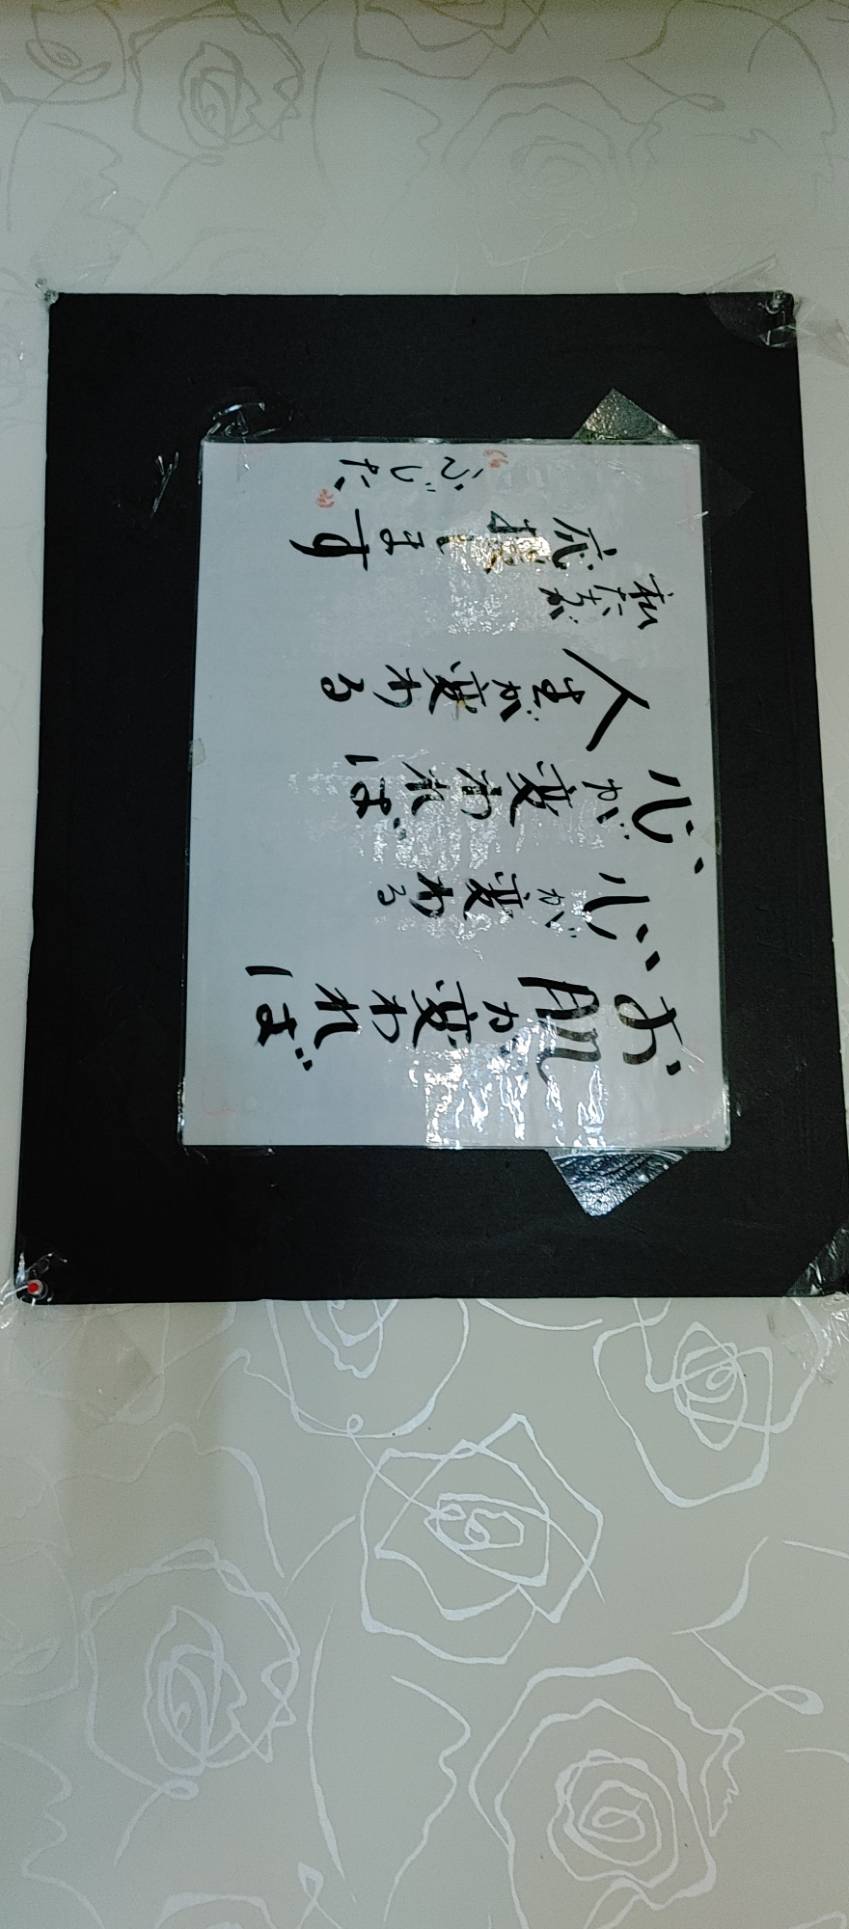 お肌が変われば
心が変わる
心が変われば
人生が変わる
私たちが
応援します
ふじた